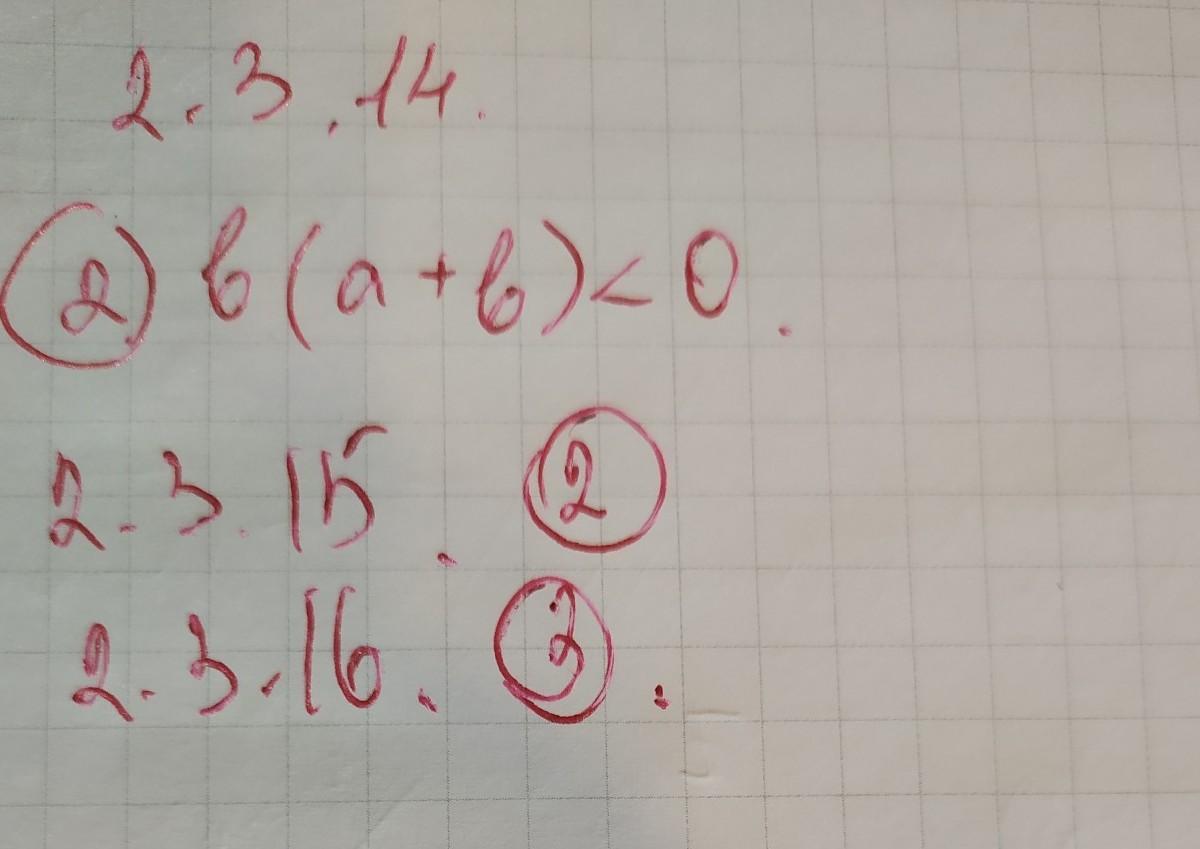 2.3.14.
2) b(a+b)<0.
2.3.15. 2
2.3.16. 3.